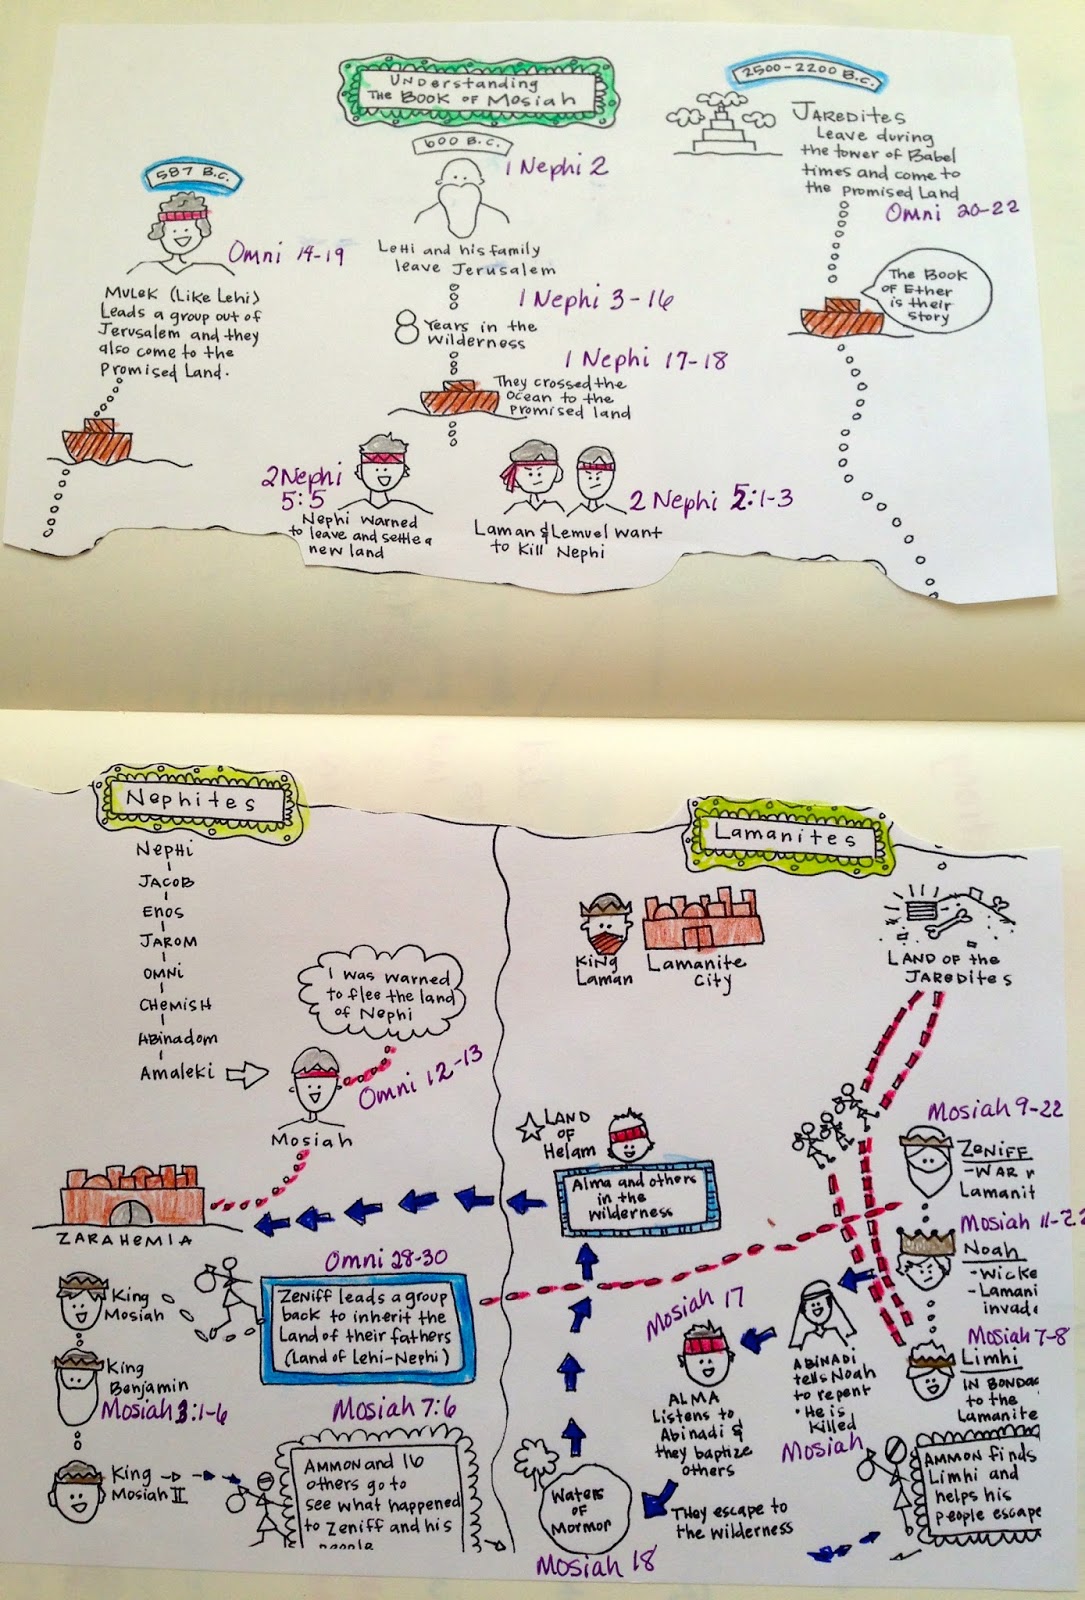 Understanding
The Book of Mosiah
2500-2200 B.C.
JAREDITES
Leave during
the tower of Babel
times and come to
the promised Land
Omni 20-22
The Book
of Ether
is their
story
600 B.C.
1 Nephi 2
Lehi and his family
leave Jerusalem
1 Nephi 3-16
8 Years in the
wilderness
1 Nephi 17-18
They crossed the
ocean to the
promised land
587 B.C.
Omni 14-19
Mulek (Like Lehi)
Leads a group out of
Jerusalem and they
also come to the
Promised Land.
2 Nephi
5:5
Nephi warned
to leave and settle a
new land
2 Nephi 5:1-3
Laman & Lemuel want
to kill Nephi
Nephites
Nephi
Jacob
Enos
Jarom
Omni
Chemish
Abinadom
Amaleki
I was warned
to flee the land
of Nephi
Omni 12-13
Mosiah
ZARAHEMLA
King
Mosiah
King
Benjamin
Mosiah 3:1-6
King
Mosiah II
Omni 28-30
Zeniff leads a group
back to inherit the
Land of their fathers
(Land of Lehi-Nephi)
Mosiah 7:6
AMMON and 16
others go to
see what happened
to Zeniff and his
people
Lamanites
King
Laman
Lamanite
City
LAND OF the
JAREDITES
LAND
OF
Helam
Alma and others
in the
wilderness
Mosiah 9-22
Zeniff
-WAR
Lamanit
Mosiah 11-22
Noah
-Wicke
-Lamani
invade
Mosiah 7-8
Limhi
IN BONDAG
to the
Lamanite
ABINADI
tells Noah
to repent
• He is
killed
Mosiah
Mosiah 17
ALMA
Listens to
Abinadi &
they baptize
others
They escape to
the wilderness
Waters
of
Mormon
Mosiah 18
AMMON finds
Limhi and
helps his
people escape